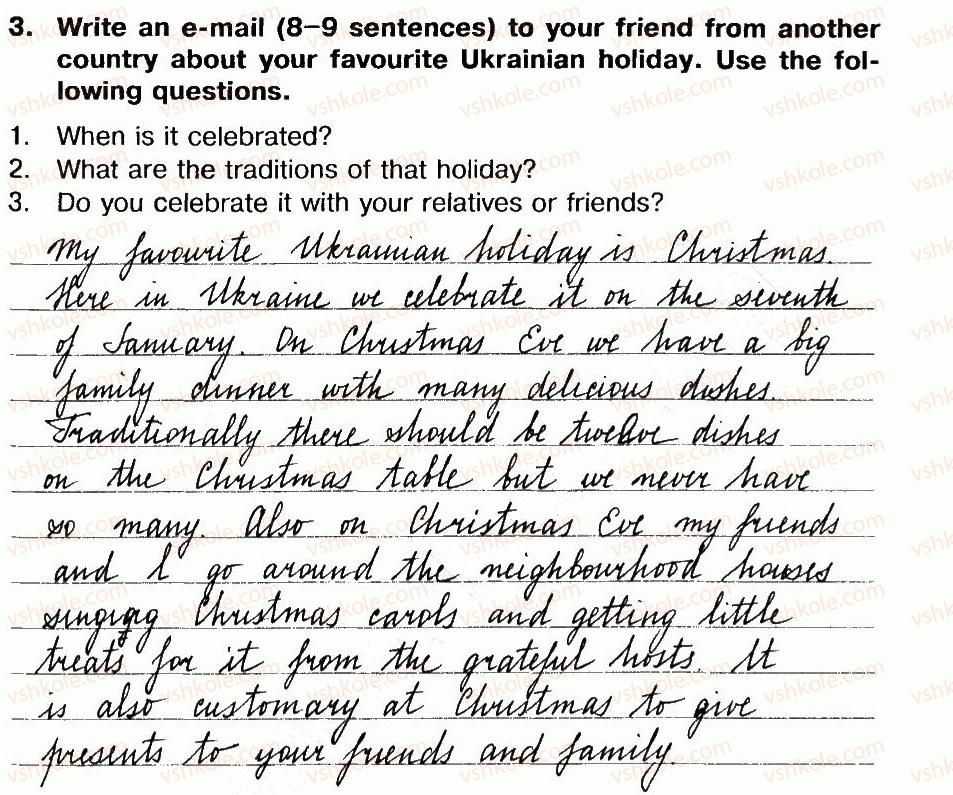 3. Write an e-mail (8–9 sentences) to your friend from another
country about your favourite Ukrainian holiday. Use the fol-
lowing questions.
1. When is it celebrated?
2. What are the traditions of that holiday?
3. Do you celebrate it with your relatives or friends?
My favourite Ukrainian holiday is Christmas.
Here in Ukraine we celebrate it on the seventh
of January. On Christmas Eve we have a big
family dinner with many delicious dishes.
Traditionally there should be twelve dishes
on the Christmas table but we never have
so many. Also on Christmas Eve my friends
and I go around the neighbourhood houses
singing Christmas carols and getting little
treats for it from the grateful hosts. It
is also customary at Christmas to give
presents to your friends and family.
vshkole.com